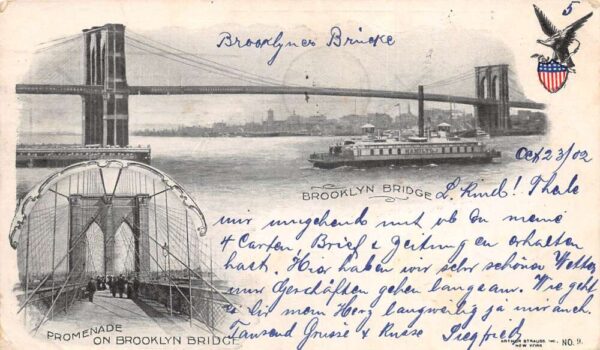 5
Brooklyner Brücke
Oct 23/02
BROOKLYN BRIDGE
L. Kind! Theile
mir umgehend mit ob Du meine
4 Carten, Brief & Zeitung en erhalten
hast. Hier haben wir sehr schönes Wetter
nur Geschäften gehen langsam. Wie geht
es Dir mein Herz langweilig ja mir auch.
Tausend Grüsse & Küsse Siegfried
PROMENADE
ON BROOKLYN BRIDGE
ARTHUR STRAUSS, INC.,
NEW YORK
NO. 9.